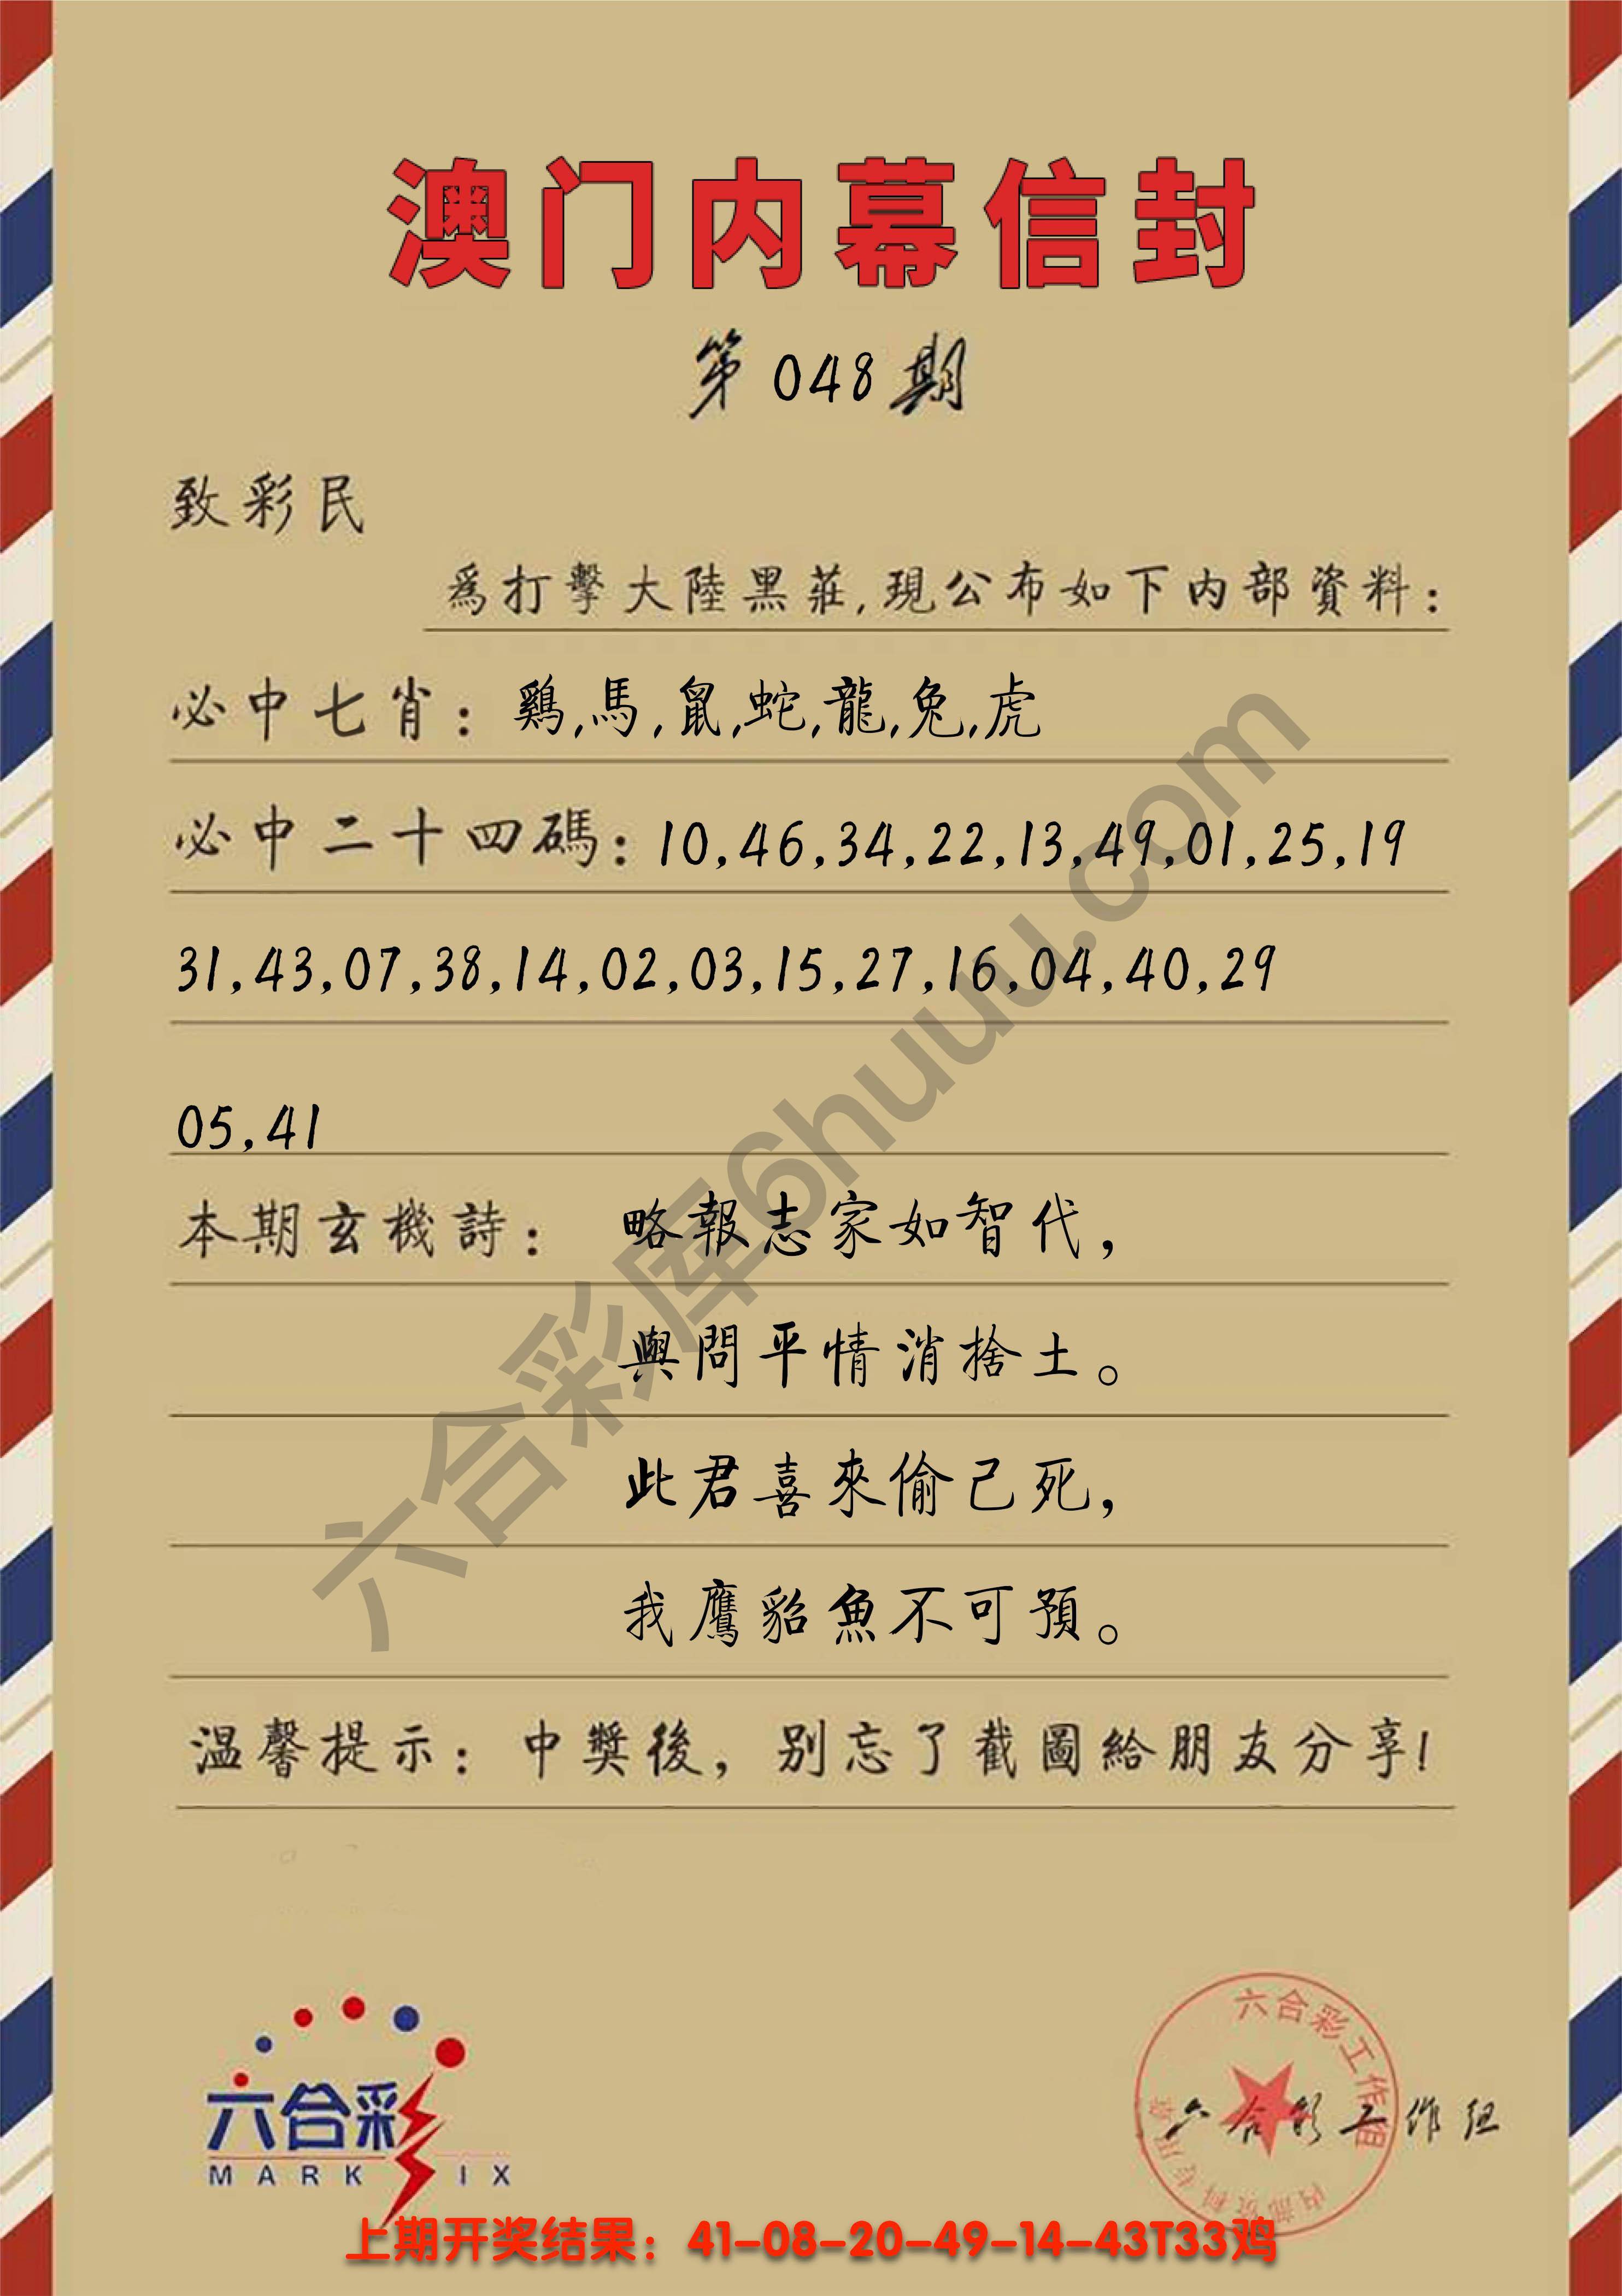 澳门内幕信封
第048期
致彩民
爲打擊大陸黑莊,現公布如下内部資料:
必中七肖: 鷄,馬,鼠,蛇,龍,兔,虎
必中二十四碼: 10,46,34,22,13,49,01,25,19
31,43,07,38,14,02,03,15,27,16,04,40,29
05,41
本期玄機詩: 略報志家如智代,
與問平情消捨土。
此君喜來偷己死,
我鷹貂魚不可預。
温馨提示: 中獎後, 别忘了截圖給朋友分享!
六合彩库6huuu.com
六合彩
MARK SIX
六合彩工作组
六合彩工作组
上期开奖结果: 41-08-20-49-14-43T33鸡